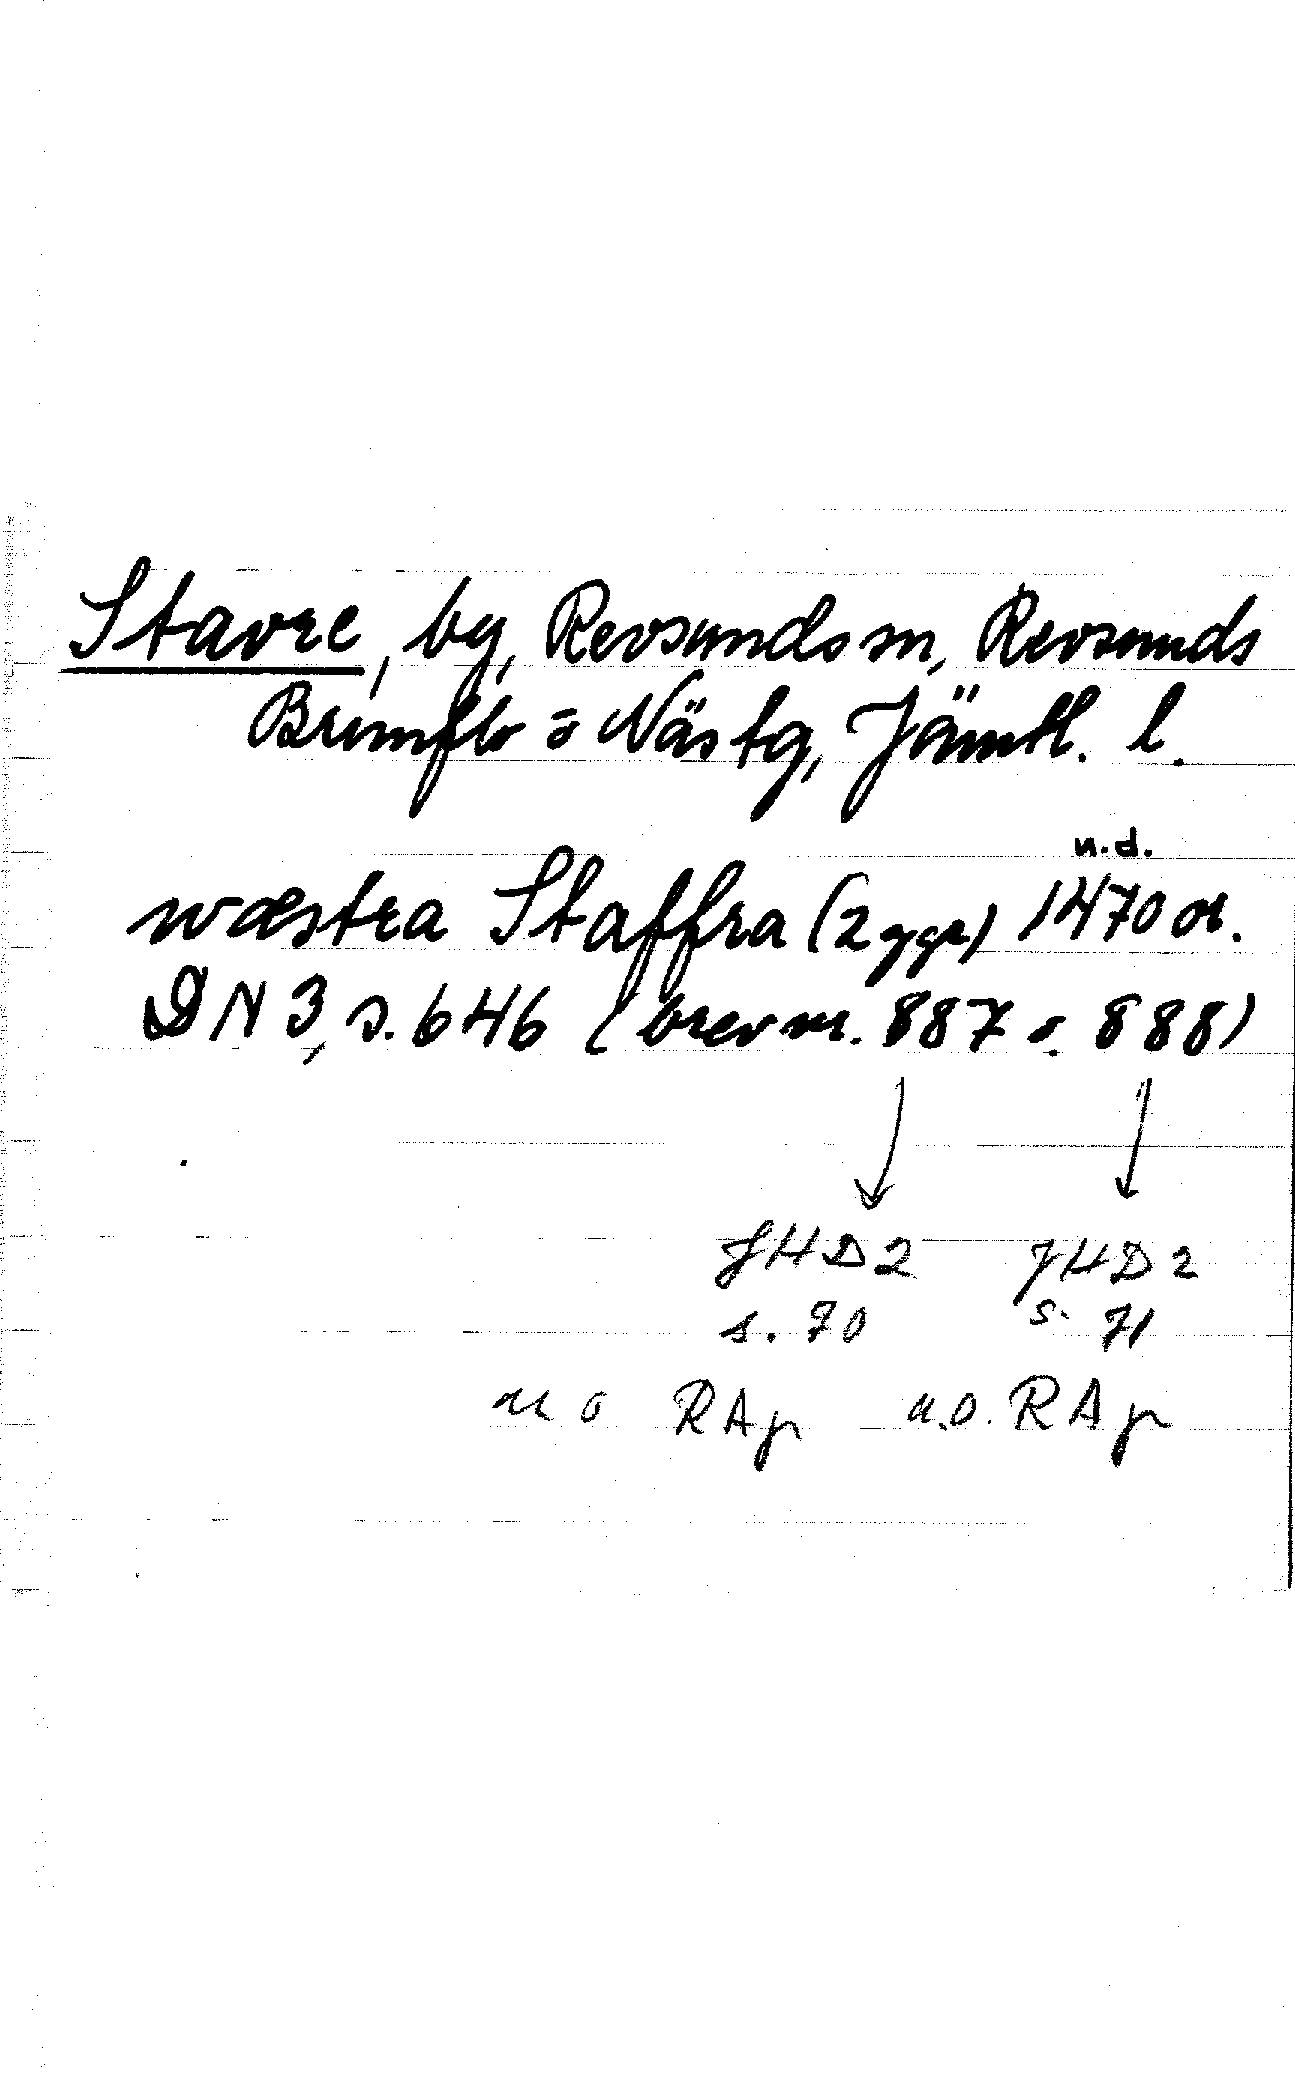 Stavre, by, Revsunds sn, Revsunds
Brunflo o Näs tg, Jämtl. l.
n.d.
wæstra Staffra (2 ggr) 1470 or.
DN 3, s. 646 (brev nr. 887 o. 888)
JHD 2 JHD 2
s. 70 s. 71
u o RAp u.o. RAp